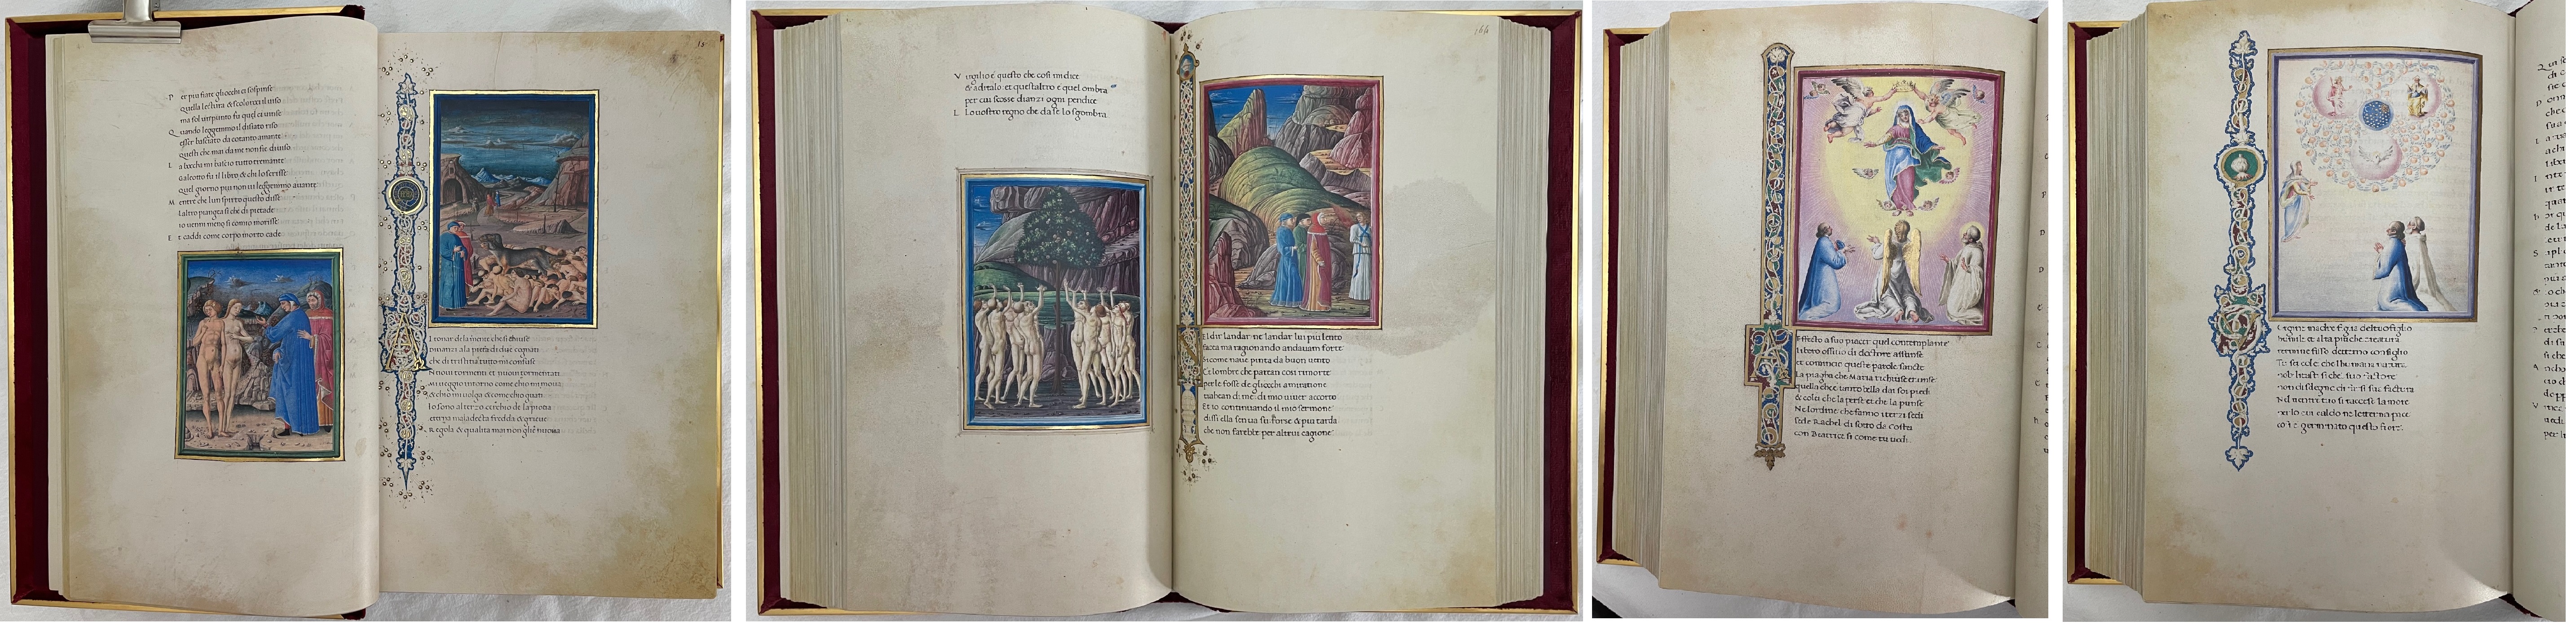 15
P er piu fiate gliocchi ci sospinse
quella lectura & scolorocci il uiso
ma sol un punto fu quel ci uinse
Q uando leggemmo il disiato riso
esser basciato da cotanto amante
questi che mai da me non fie diuiso
L a boccha mi bascio tutto tremante
galeotto fu il libro & chi lo scrisse
quel giorno piu non ui leggemmo auante
M entre che lun spirto questo disse
laltro piangea si che di pietade
io uenni meno si comio morisse
E t caddi come corpo morto cade
A l tornar dela mente che si chiuse
dinanzi ala pieta di due cognati
che di tristitia tutto mi confuse
N uoui tormenti et nuoui tormentati
mi ueggio intorno come chio mi moua
& chio mi uolga & come chio guati
Io sono al terzo cerchio dela piova
eterna maladecta fredda & grieue
Regola & qualita mai non glie nuoua
V irgilio e questo che cosi mi dice
& aditalo et questaltro e quel ombra
per cui scosse dianzi ogni pendice
L Lo uostro regno che da se lo sgombra
164
N El dir landar ne landar lui piu lento
facea ma ragionando andauam forte
si come naue pinta da buon uento
E lombre che parean cosi rimorte
per le fosse de gliocchi amiratione
trahean di me di mio uiuer accorto
Et io continuando il mio sermone
dissi ella sen ua su forse & piu tarda
che non farebbe per altrui cagione
A ffecto a suo piacer quel contemplante
libero officio di doctore assunse
et comincio queste parole sancte
La piagha che Maria richiuse et unse
quella che tanto bella da soi piedi
& colei che laperse et che la punse
Ne lordine che fanno i terzi sedi
siede Rachel di sotto da costei
con Beatrice si come tu uedi
V ergine madre figlia del tuo figlio
humile et alta piu che creatura
termine fisso decterno consiglio
Tu sei colei che lhumana natura
nobilitasti si che suo factore
non disdegno di farsi sua factura
Nel uentre tuo si raccese lamore
per lo cui caldo ne letterna pace
cosi e germinato questo fiore